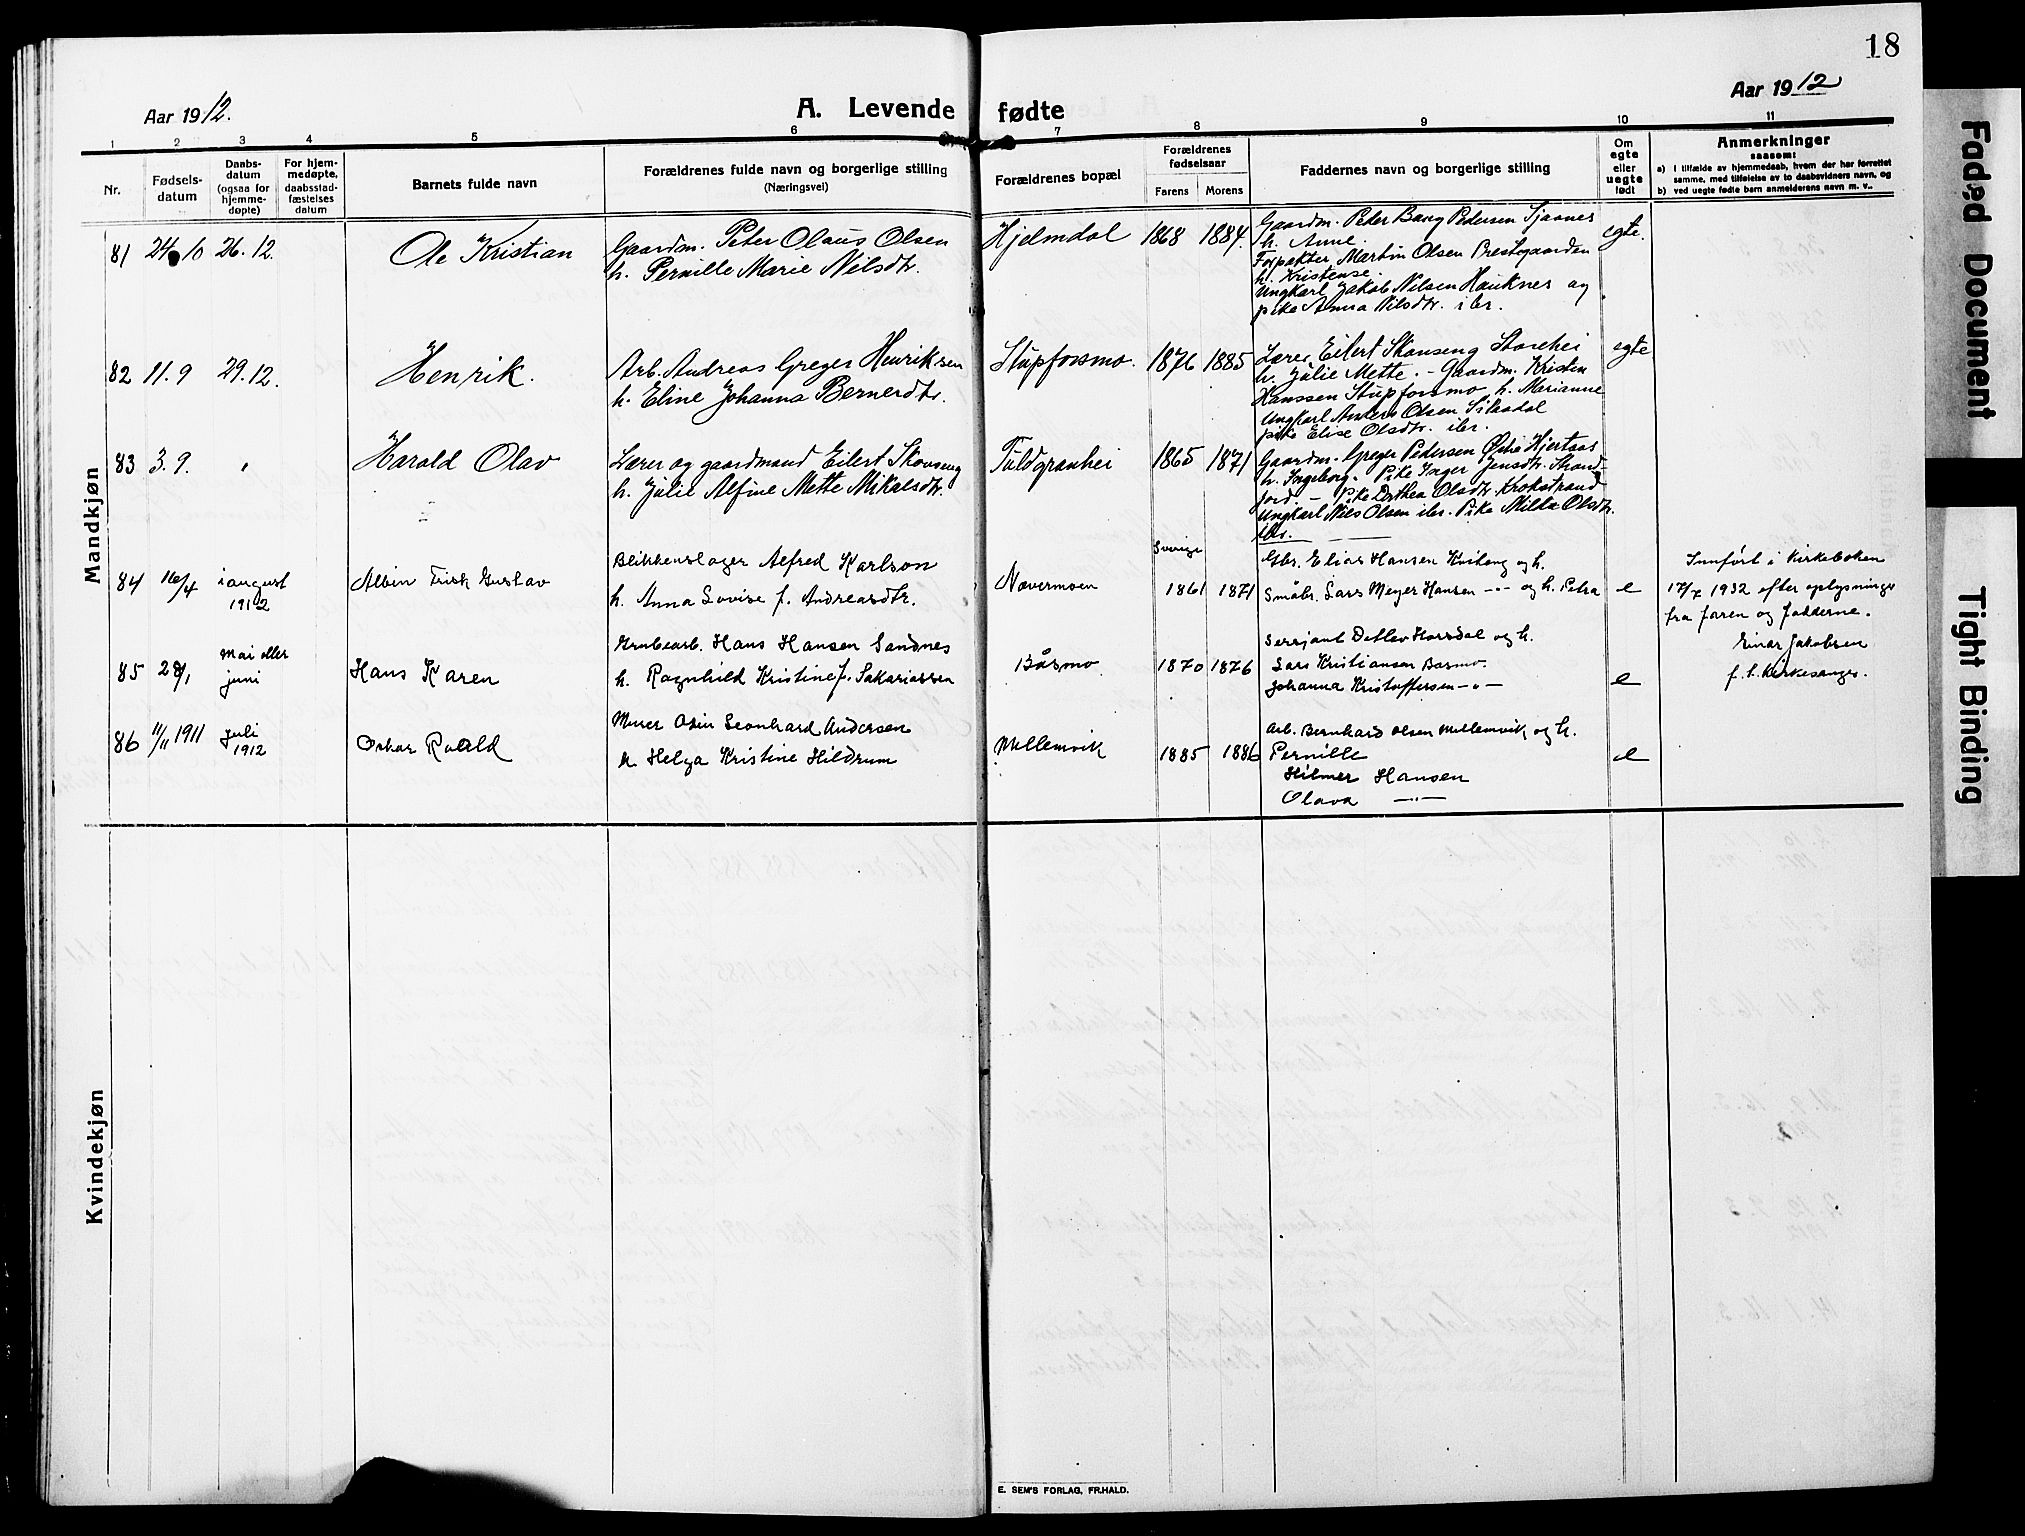 18
Aar 1912.
A. Levende fødte
Aar 1912
1 2 3 4 5 6 7 8 9 10 11
Nr.
Fødsels-
datum
Daabs-
datum
(ogsaa for
hjemme-
døpte)
For hjem-
medøpte,
daabsstad-
fæstelses
datum
Barnets fulde navn
Forældrenes fulde navn og borgerlige stilling
(Næringsvei)
Forældrenes bopæl
Forældrenes
fødselsaar
Farens Morens
Faddernes navn og borgerlige stilling
Om
egte
eller
uegte
født
Anmerkninger
saasom:
a) I tilfælde av hjemmedaab, hvem der har forrettet
samme, med tilføielse av to daabsvidners navn, og
b) ved uegte fødte barn anmelderens navn m. v..
Mandkjøn
81 24 10 26.12. Ole Kristian
Gaardm. Peter Olaus Olsen
h. Pernille Marie Nilsdtr.
Hjelmdal 1868 1884.
Gaardm. Peter Bang Pedersen Sjaanes
h. Anne.
Forpakter Martin Olsen Prestegaarden
h. Kristense.
Ungkarl Jakob Nilsen Hauknes og
pike Anna Nilsdtr. ibr.
egte.
82 11.9 29.12. Henrik.
Arb. Andreas Greger Henriksen
h. Eline Johanna Bernerdtr.
Stupforsmo. 1876 1885
Lærer Eilert Skonseng Storehei
h. Julie Mette. - Gaardm. Kristin
Hanssen Stupforsmo, h. Marianne
Ungkarl Anders Olsen
pike Elise Olsdtr. ibr.
egte
83 3.9. " Harald Olav
Lærer og gaardmand Eilert Skonseng
h. Julie Alfine Mette Mikalsdtr.
Tuldgranhei 1865 1871
Gaardm. Greger Pedersen Østre Hjertaas
h. Ingeborg. Pike Inger Jensdtr. Strand-
jord - Pike Dorthea Olsdtr. Krokstrand
Ungkarl Nils Olsen ibr. Pike Milda Olsdtr.
ibr.
84 16/4 i august
1912
Albin Frisk Gustav
Blikkenslager Alfred Karlson
h. Anna Lovise f. Andreasdtr.
Nævermoen
Sverige
1861 1871
Gbr. Elias Hansen Hviteng og h.
Småbr. Lars Meyer Hansen -"- og h. Petra
e
Innført i Kirkeboken
17/7 1932 efter oplysninger
fra faren og fadderne.
Einar Jakobsen
f. t. Kirkesanger.
85 28/1 Mai eller
juni
Hans Karen
Grubearb. Hans Hansen Sandnes
h. Ragnhild Kristine f. Sakariassen
Båsmo 1870 1876
Sersjant Detlev Horsdal og h.
Lars Kristiansen Basmo.
Johanna Kristoffersen -"-
e
86 11/11 1911 Juli
1912
Oskar Roald
Murer Odin Leonhard Andersen
h. Helga Kristine Hildrum
Mellemvik 1885 1886
Arb. Bernhard Olsen Mellemvik og h.
Pernille
Hilmer Hansen
Olava -"-
e
Kvindekjøn
E. SEM'S FORLAG, FR.HALD.
Faded Document
Tight Binding